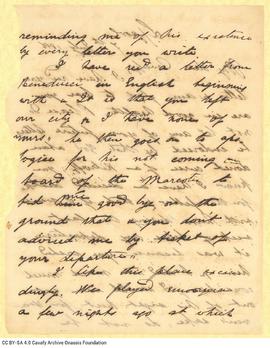 reminding me of his existence
by every letter you write
I have recd a letter from
in English beginning
with "It is that you left
our city & I have none of
yours". he then goes on to apo
logise for his not coming on
board of the to
bid me good bye on the
ground that "you don't
adviced me by ticket of
your departure".
I like this place excee
dingly. We played
a few nights ago at which
CC BY-SA 4.0 Cavafy Archive Onassis Foundation